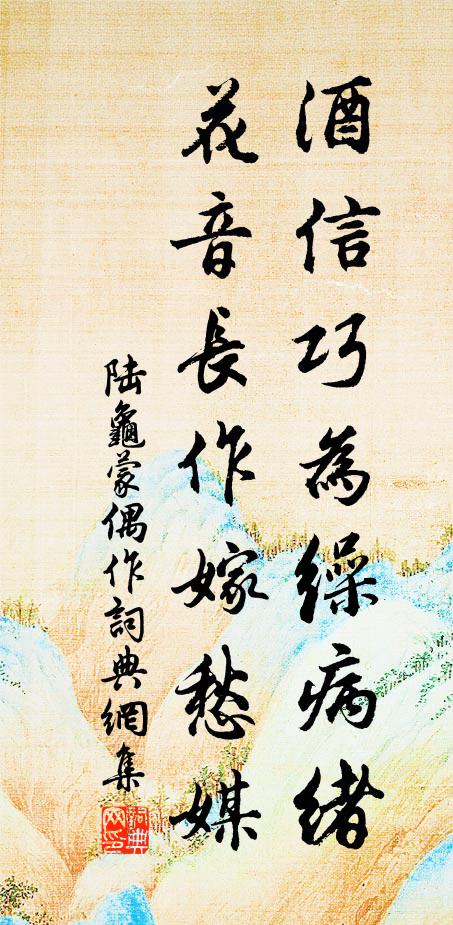 酒信巧為繰病緒
花音長作嫁愁媒
陸龜蒙偶作詞典網集